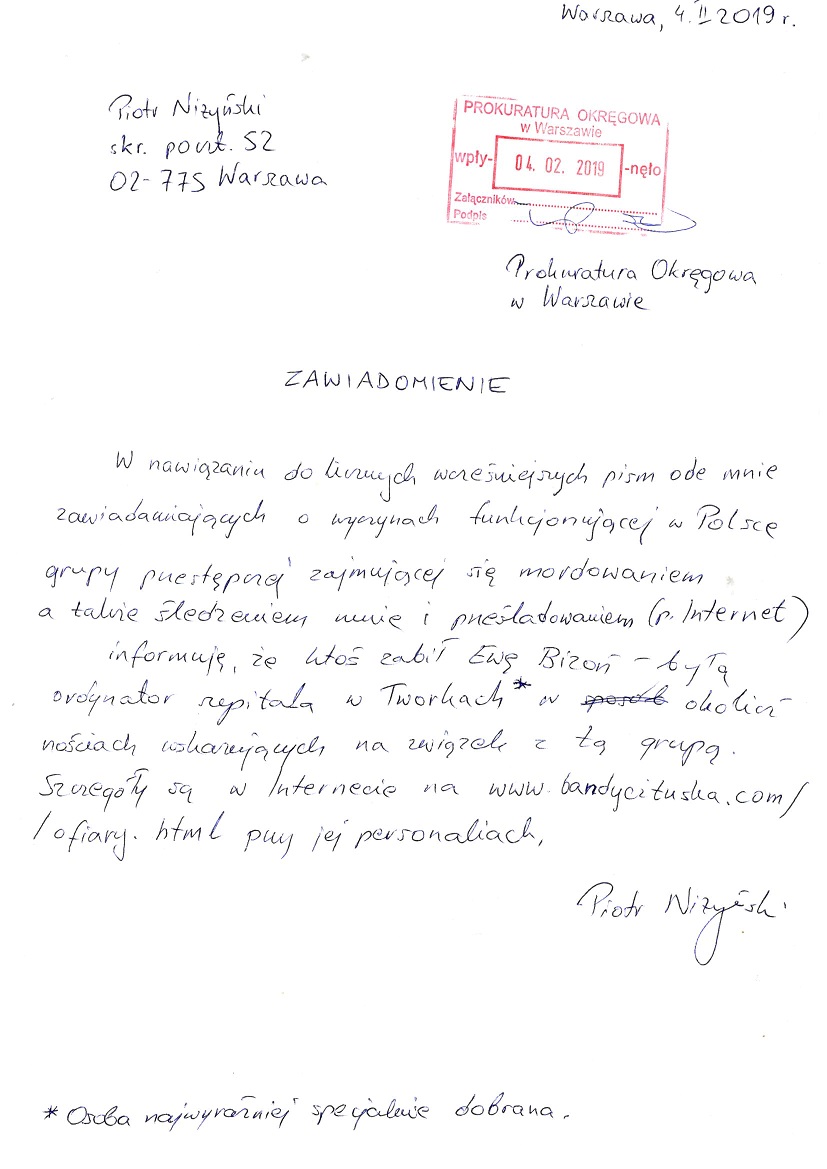 Warszawa, 4. II 2019 r.
Piotr Niżyński
skr. poczt. 52
02-775 Warszawa
PROKURATURA OKRĘGOWA
w Warszawie
wpły- 04. 02. 2019 -nęło
Załączników
Podpis
Prokuratura Okręgowa
w Warszawie
ZAWIADOMIENIE
W nawiązaniu do licznych wcześniejszych pism ode mnie
zawiadamiających o wyczynach funkcjonującej w Polsce
grupy przestępczej zajmującej się mordowaniem
a także śledzeniem mnie i prześladowaniem (p. Internet)
informuję, że ktoś zabił Ewę Bizoń – byłą
ordynator szpitala w Tworkach* w sposób okolicz
nościach wskazujących na związek z tą grupą.
Szczegóły są w Internecie na www.bandycituska.com/
/ofiary.html przy jej personaliach,
Piotr Niżyński
* Osoba najwyraźniej specjalnie dobrana.